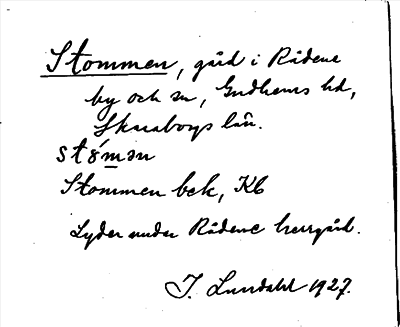 Stommen, gård i Rådene
by och sn, Gudhems hd,
Skaraborgs län.
stó̤mən
Stommen bek, Kb
Lyder under Rådene herrgård.
I. Lundahl 1927.